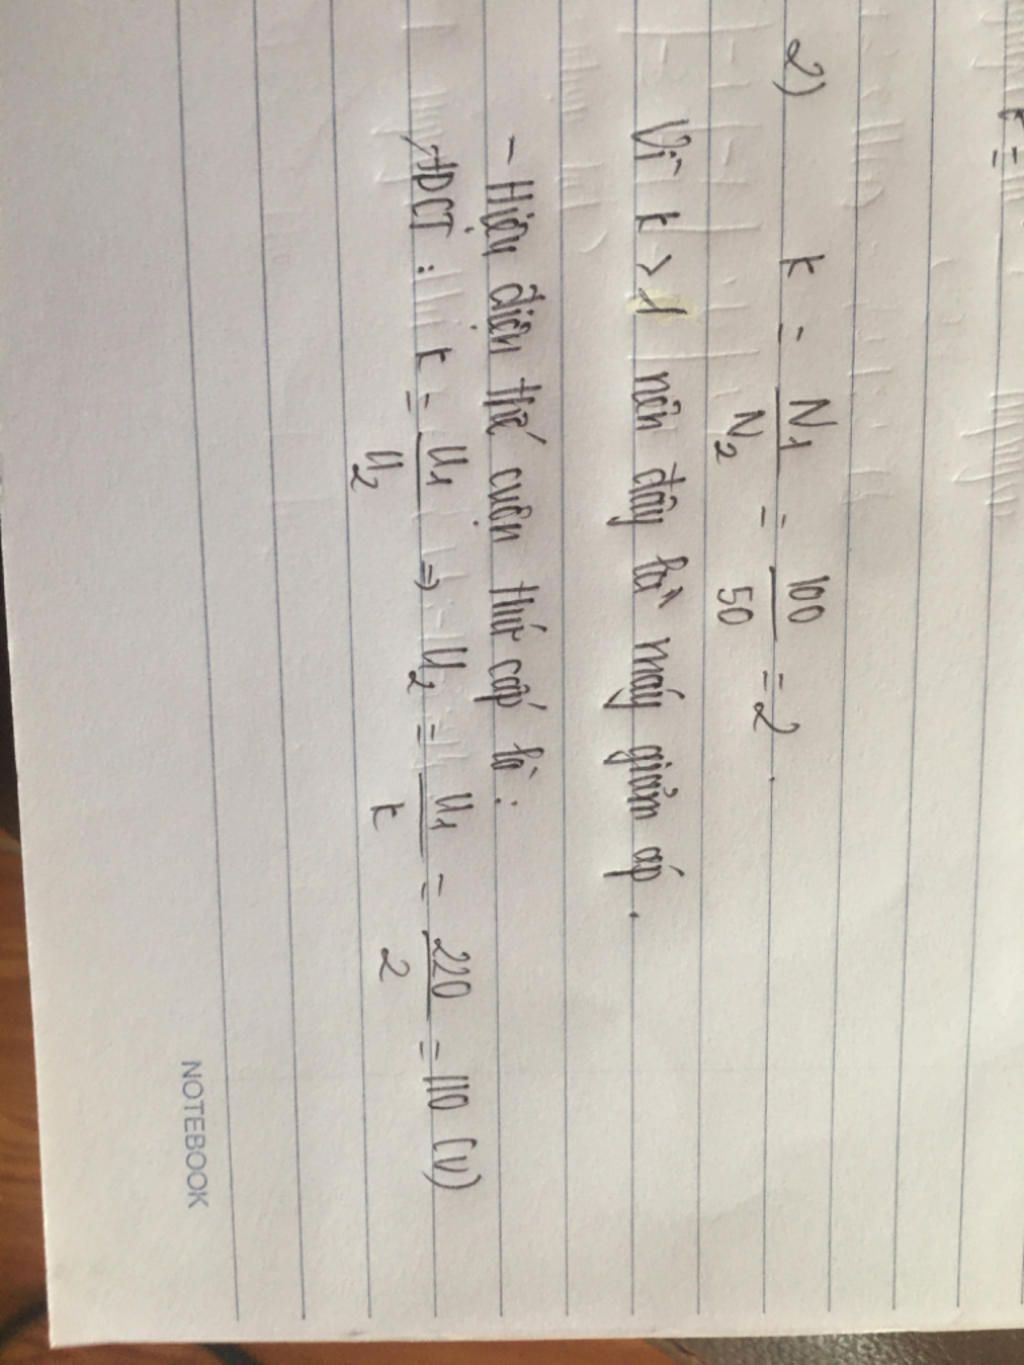 k =
2) k = N₁/N₂ = 100/50 = 2.
Vì k > 1 nên đây là máy giảm áp.
- Hiệu điện thế cuộn thứ cấp là:
ADCT: k = U₁/U₂ => U₂ = U₁/k = 220/2 = 110 (V)
NOTEBOOK